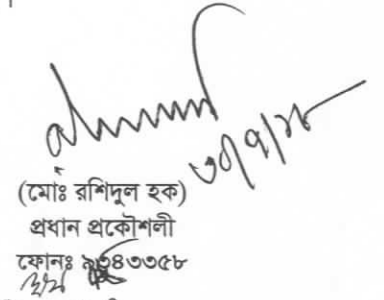 ৩০/৭/১৮
(মোঃ রশিদুল হক)
প্রধান প্রকৌশলী
ফোনঃ ৯৩৪৩৩৫৮